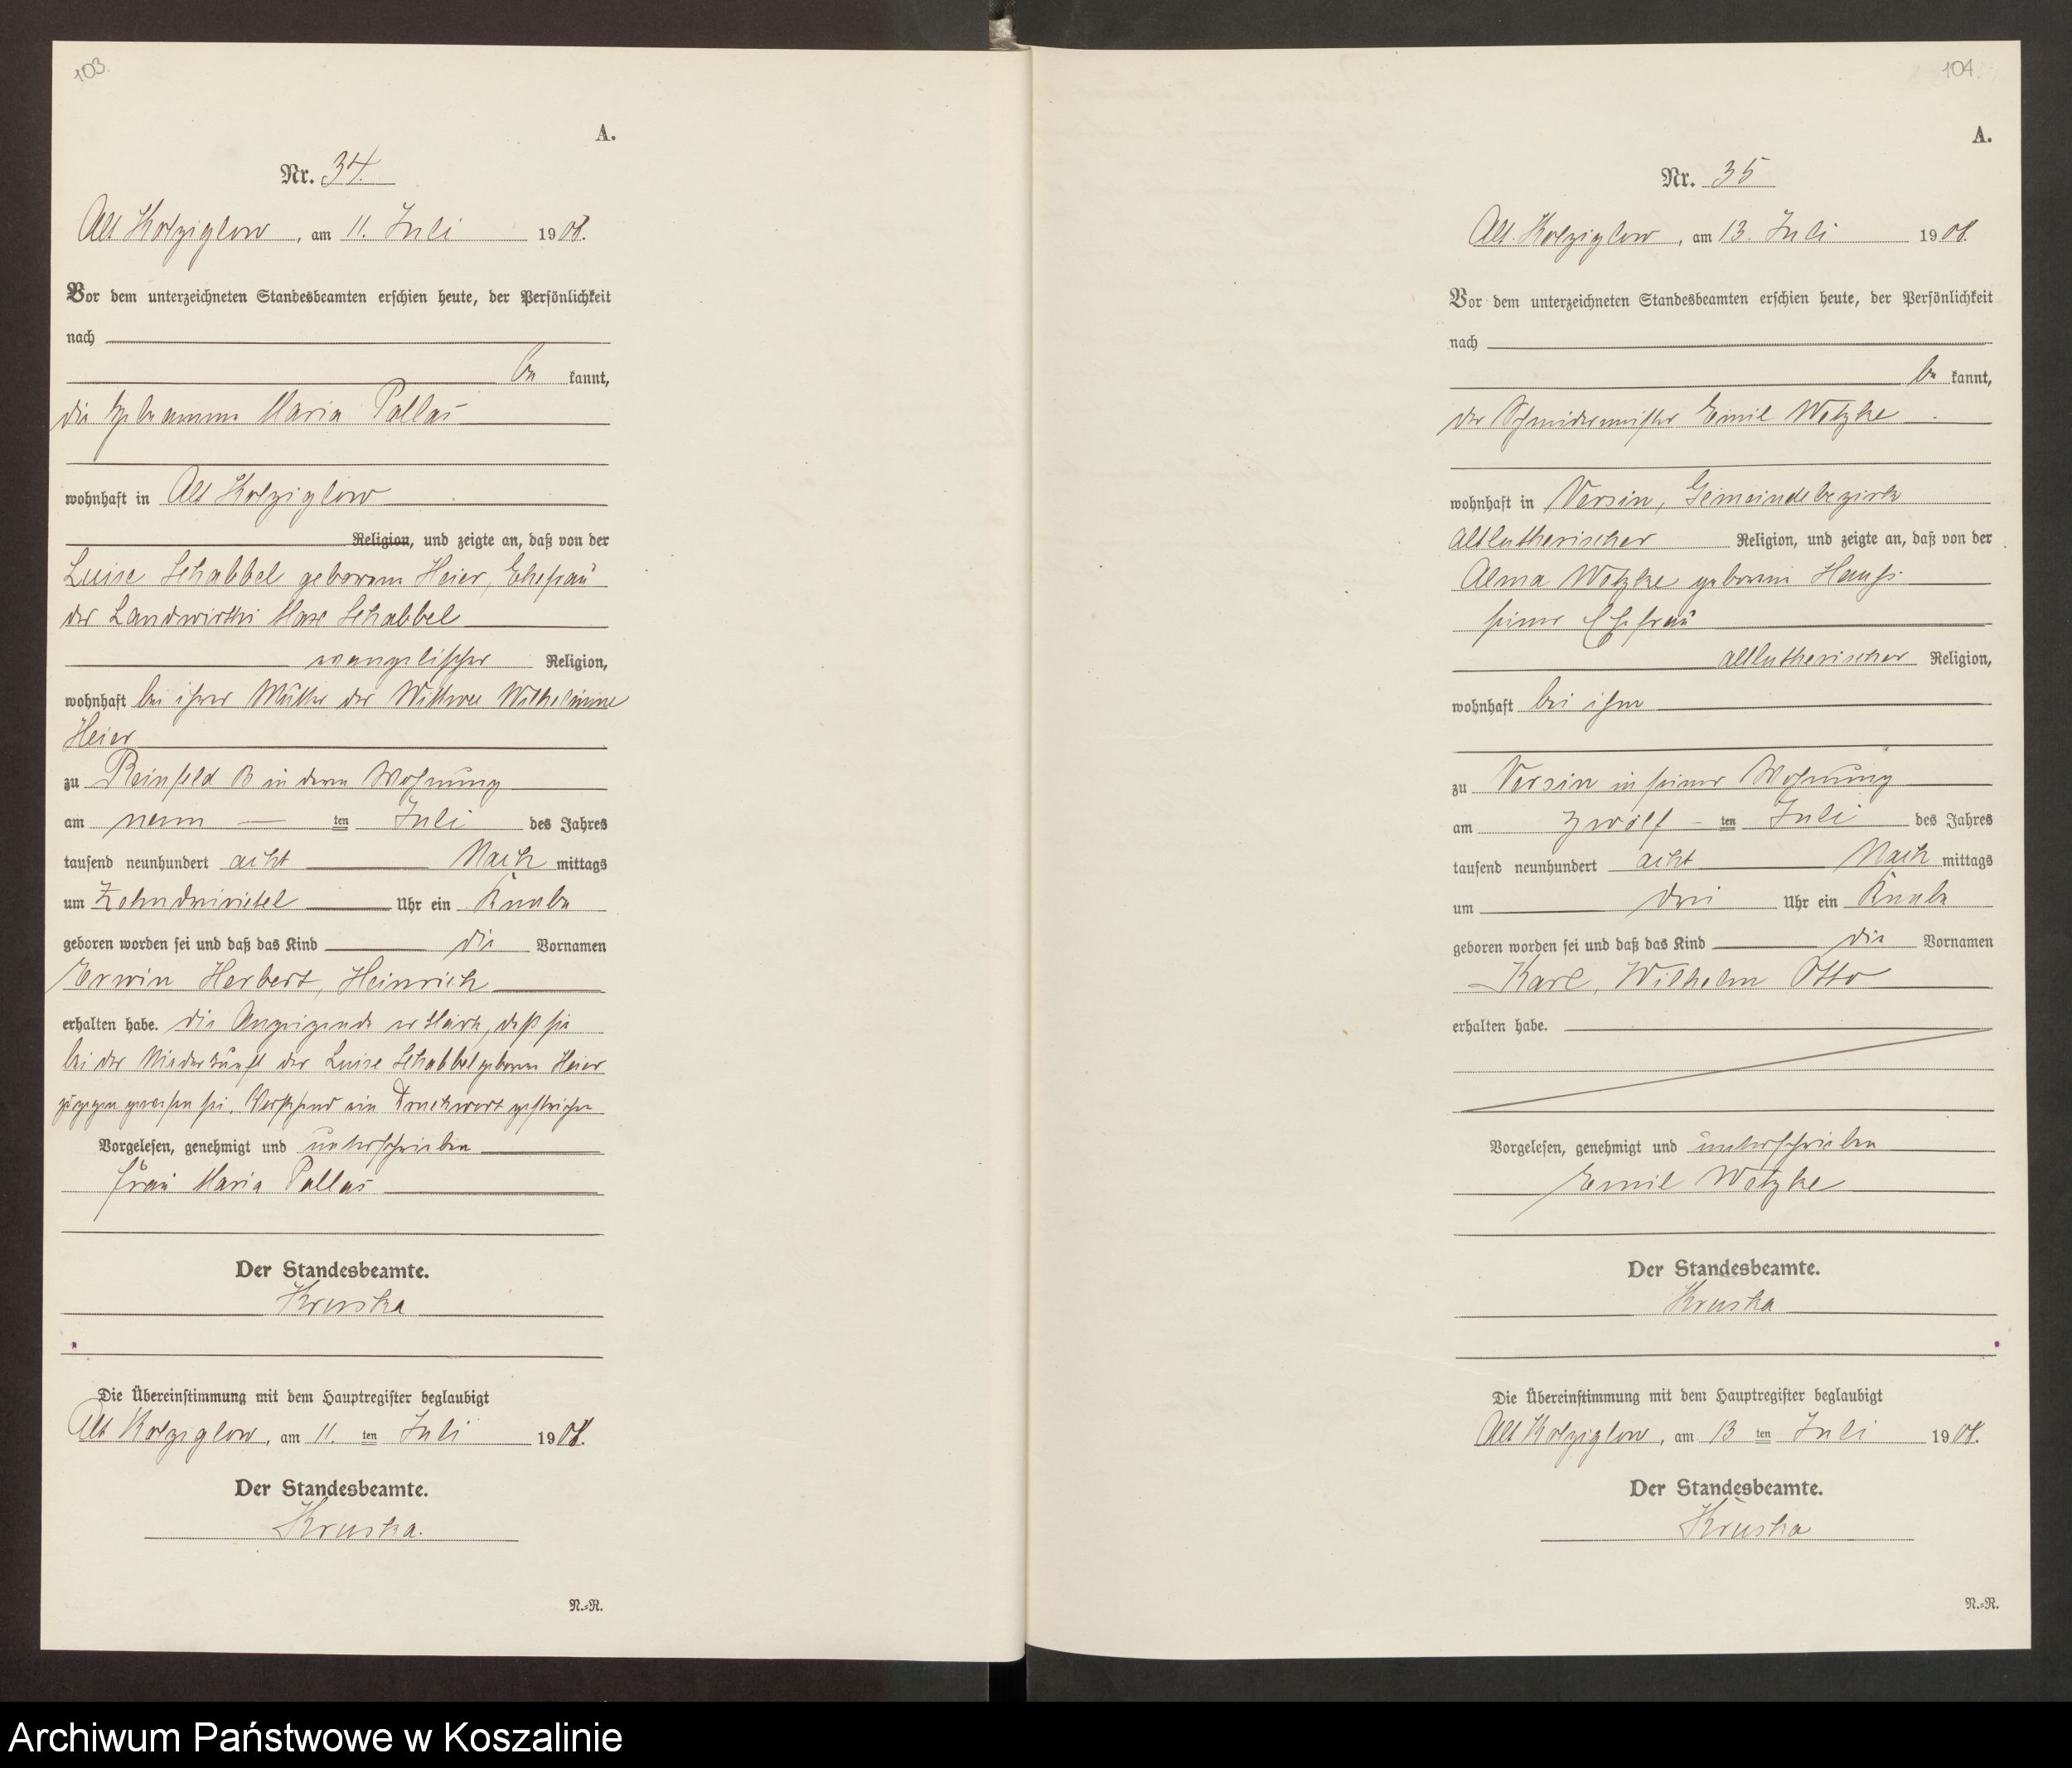 103.
A.
Nr. 34.
Alt Kolziglow, am 11. Juli 1908.
Vor dem unterzeichneten Standesbeamten erschien heute, der Persönlichkeit
nach
be kannt,
die Hebamme Maria Pallas
wohnhaft in Alt Kolziglow
Religion, und zeigte an, daß von der
Luise Schabbel geborenen Heier, Ehefrau
des Landwirths Max Schabbel
evangelischer Religion,
wohnhaft bei ihrer Mutter der Wittwe Wilhelmine
Heier
zu Reinfeld B in deren Wohnung
am neun ten Juli des Jahres
tausend neunhundert acht Nach mittags
um Zehndreiviertel Uhr ein Knabe
geboren worden sei und daß das Kind die Vornamen
Erwin Herbert, Heinrich
erhalten habe. Die Anzeigende erklärte, daß sie
bei der Niederkunft der Luise Schabbel geborenen Heier
zugegen gewesen sei. Vorstehend ein Druckwort gestrichen
Vorgelesen, genehmigt und unterschrieben
Frau Maria Pallas
Der Standesbeamte.
Kruska
Die Übereinstimmung mit dem Hauptregister beglaubigt
Alt Kolziglow, am 11. ten Juli 1908.
Der Standesbeamte.
Kruska.
N.=R.
104.
A.
Nr. 35
Alt. Kolziglow, am 13. Juli 1908.
Vor dem unterzeichneten Standesbeamten erschien heute, der Persönlichkeit
nach
be kannt,
der Schmiedemeister Emil Wetzke
wohnhaft in Versin, Gemeindebezirk
altlutherischer Religion, und zeigte an, daß von der
Alma Wetzke geborenen
seiner Ehefrau
altlutherischer Religion,
wohnhaft bei ihm
zu Versin in seiner Wohnung
am zwölf ten Juli des Jahres
tausend neunhundert acht Nach mittags
um drei Uhr ein Knabe
geboren worden sei und daß das Kind die Vornamen
Karl, Wilhelm Otto
erhalten habe.
Vorgelesen, genehmigt und unterschrieben
Emil Wetzke
Der Standesbeamte.
Kruska
Die Übereinstimmung mit dem Hauptregister beglaubigt
Alt Kolziglow, am 13 ten Juli 1908.
Der Standesbeamte.
Kruska
N.=R.
Archiwum Państwowe w Koszalinie